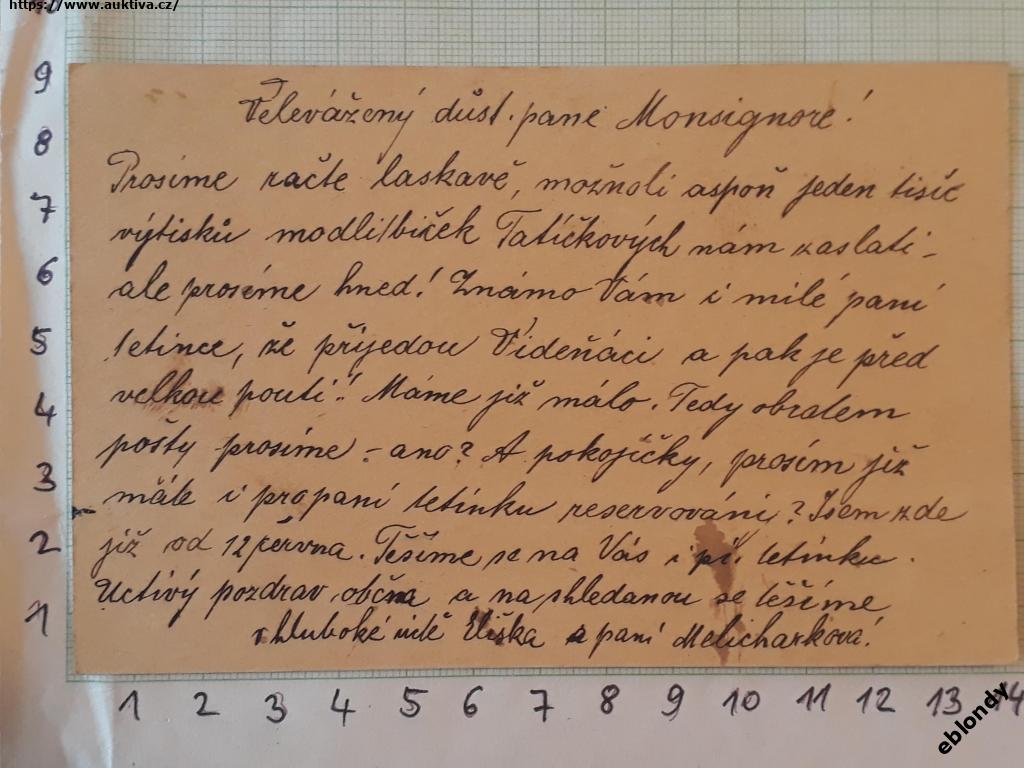 https://www.auktiva.cz/
10
9
8
7
6
5
4
3
2
1
Velevážený důst. pane Monsignore!
Prosíme račte laskavě, možnoli aspoň jeden tisíc
výtisků modlitbiček Tatíčkových nám zaslati –
ale prosíme hned! Známo Vám i milé paní
tetince, že přijedou Vídeňáci a pak je před
velkou poutí! Máme již málo. Tedy obratem
pošty prosíme – ano? A pokojíčky, prosím již
máte i pro paní tetinku reservováni? Jsem zde
již od 12 června. Těšíme se na Vás i pí. tetinku.
Uctivý pozdrav, a na shledanou se těšíme
v hluboké Eliška a paní Melicharková!
1 2 3 4 5 6 7 8 9 10 11 12 13 14
eblondy